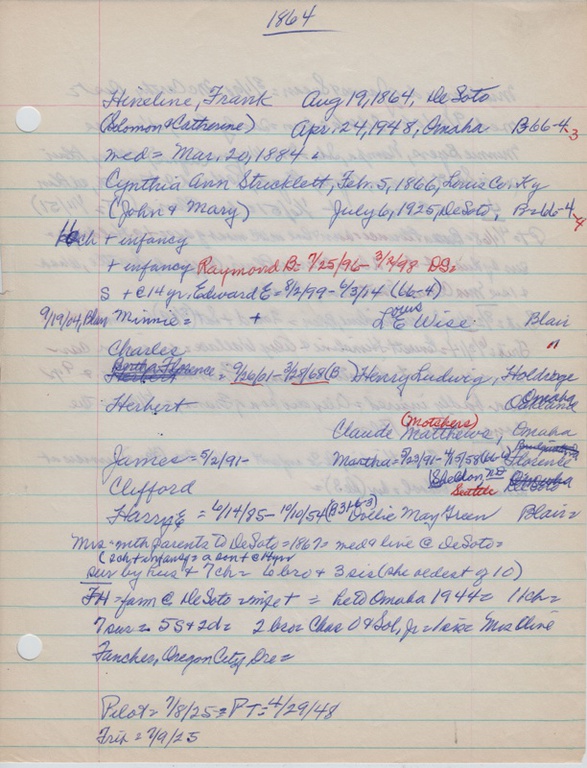 1864
Hineline, Frank Aug 19, 1864, DeSoto
(Solomon & Catherine) Apr. 24, 1948, Omaha B66-4-3
med = Mar. 20, 1884
Cynthia Ann Stricklett, Feb. 5, 1866, Louis Co. Ky
(John & Mary) July 6, 1925, DeSoto, B=66-4-4
ch + infancy
+ infancy Raymond B= 7/25/96 - 3/2/98 DS=
S + @ 14 yr. Edward E = 8/2/99 - 4/3/14 (66-4)
9/19/04, Blair Minnie = + Louis E Wise Blair
Charles "
Bertha Florence = 9/26/01 - 3/28/68 (B) Henry Ludwig, Holdrege
Herbert Omaha Oakland
Claude (Motskers) Matthews, Omaha
James = 5/2/91- Martha = 5/23/91 - 4/15/58 (66-4) Florence
Clifford Sheldon, ND Seattle DeSoto
Harry E = 6/14/85 - 19/10/54 (B31-6-3) Dollie May Green Blair =
Mrs = mth parents to DeSoto = 1867 = med & live @ DeSoto =
(2 ch + infancy = a son + @ 14 yrs
sur by hus & 7 ch = 6 bro & 3 sis (she oldest of 10)
FH = farm @ DeSoto = wife + = he to Omaha 1944 = 11 ch =
7 sur = 5 S & 2 d = 2 bro = Chas O & Sol, Jr = Mrs Olive
Fancher, Oregon City, Ore =
Pilot = 7/8/25 = PT = 4/29/48
Trib = 7/9/25